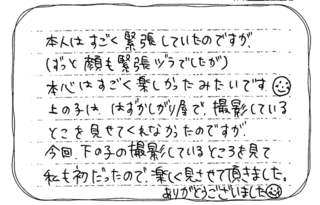 本人はすごく緊張していたのですが、
(ずっと顔も緊張ヅラでしたが)
本心はすごく楽しかったみたいです
上の子は はずかしがり屋で、撮影している
とこを見せてくれなかったのですが
今回、下の子の撮影しているところを見て
私も初だったので、楽しく見させて頂きました。
ありがとうございました